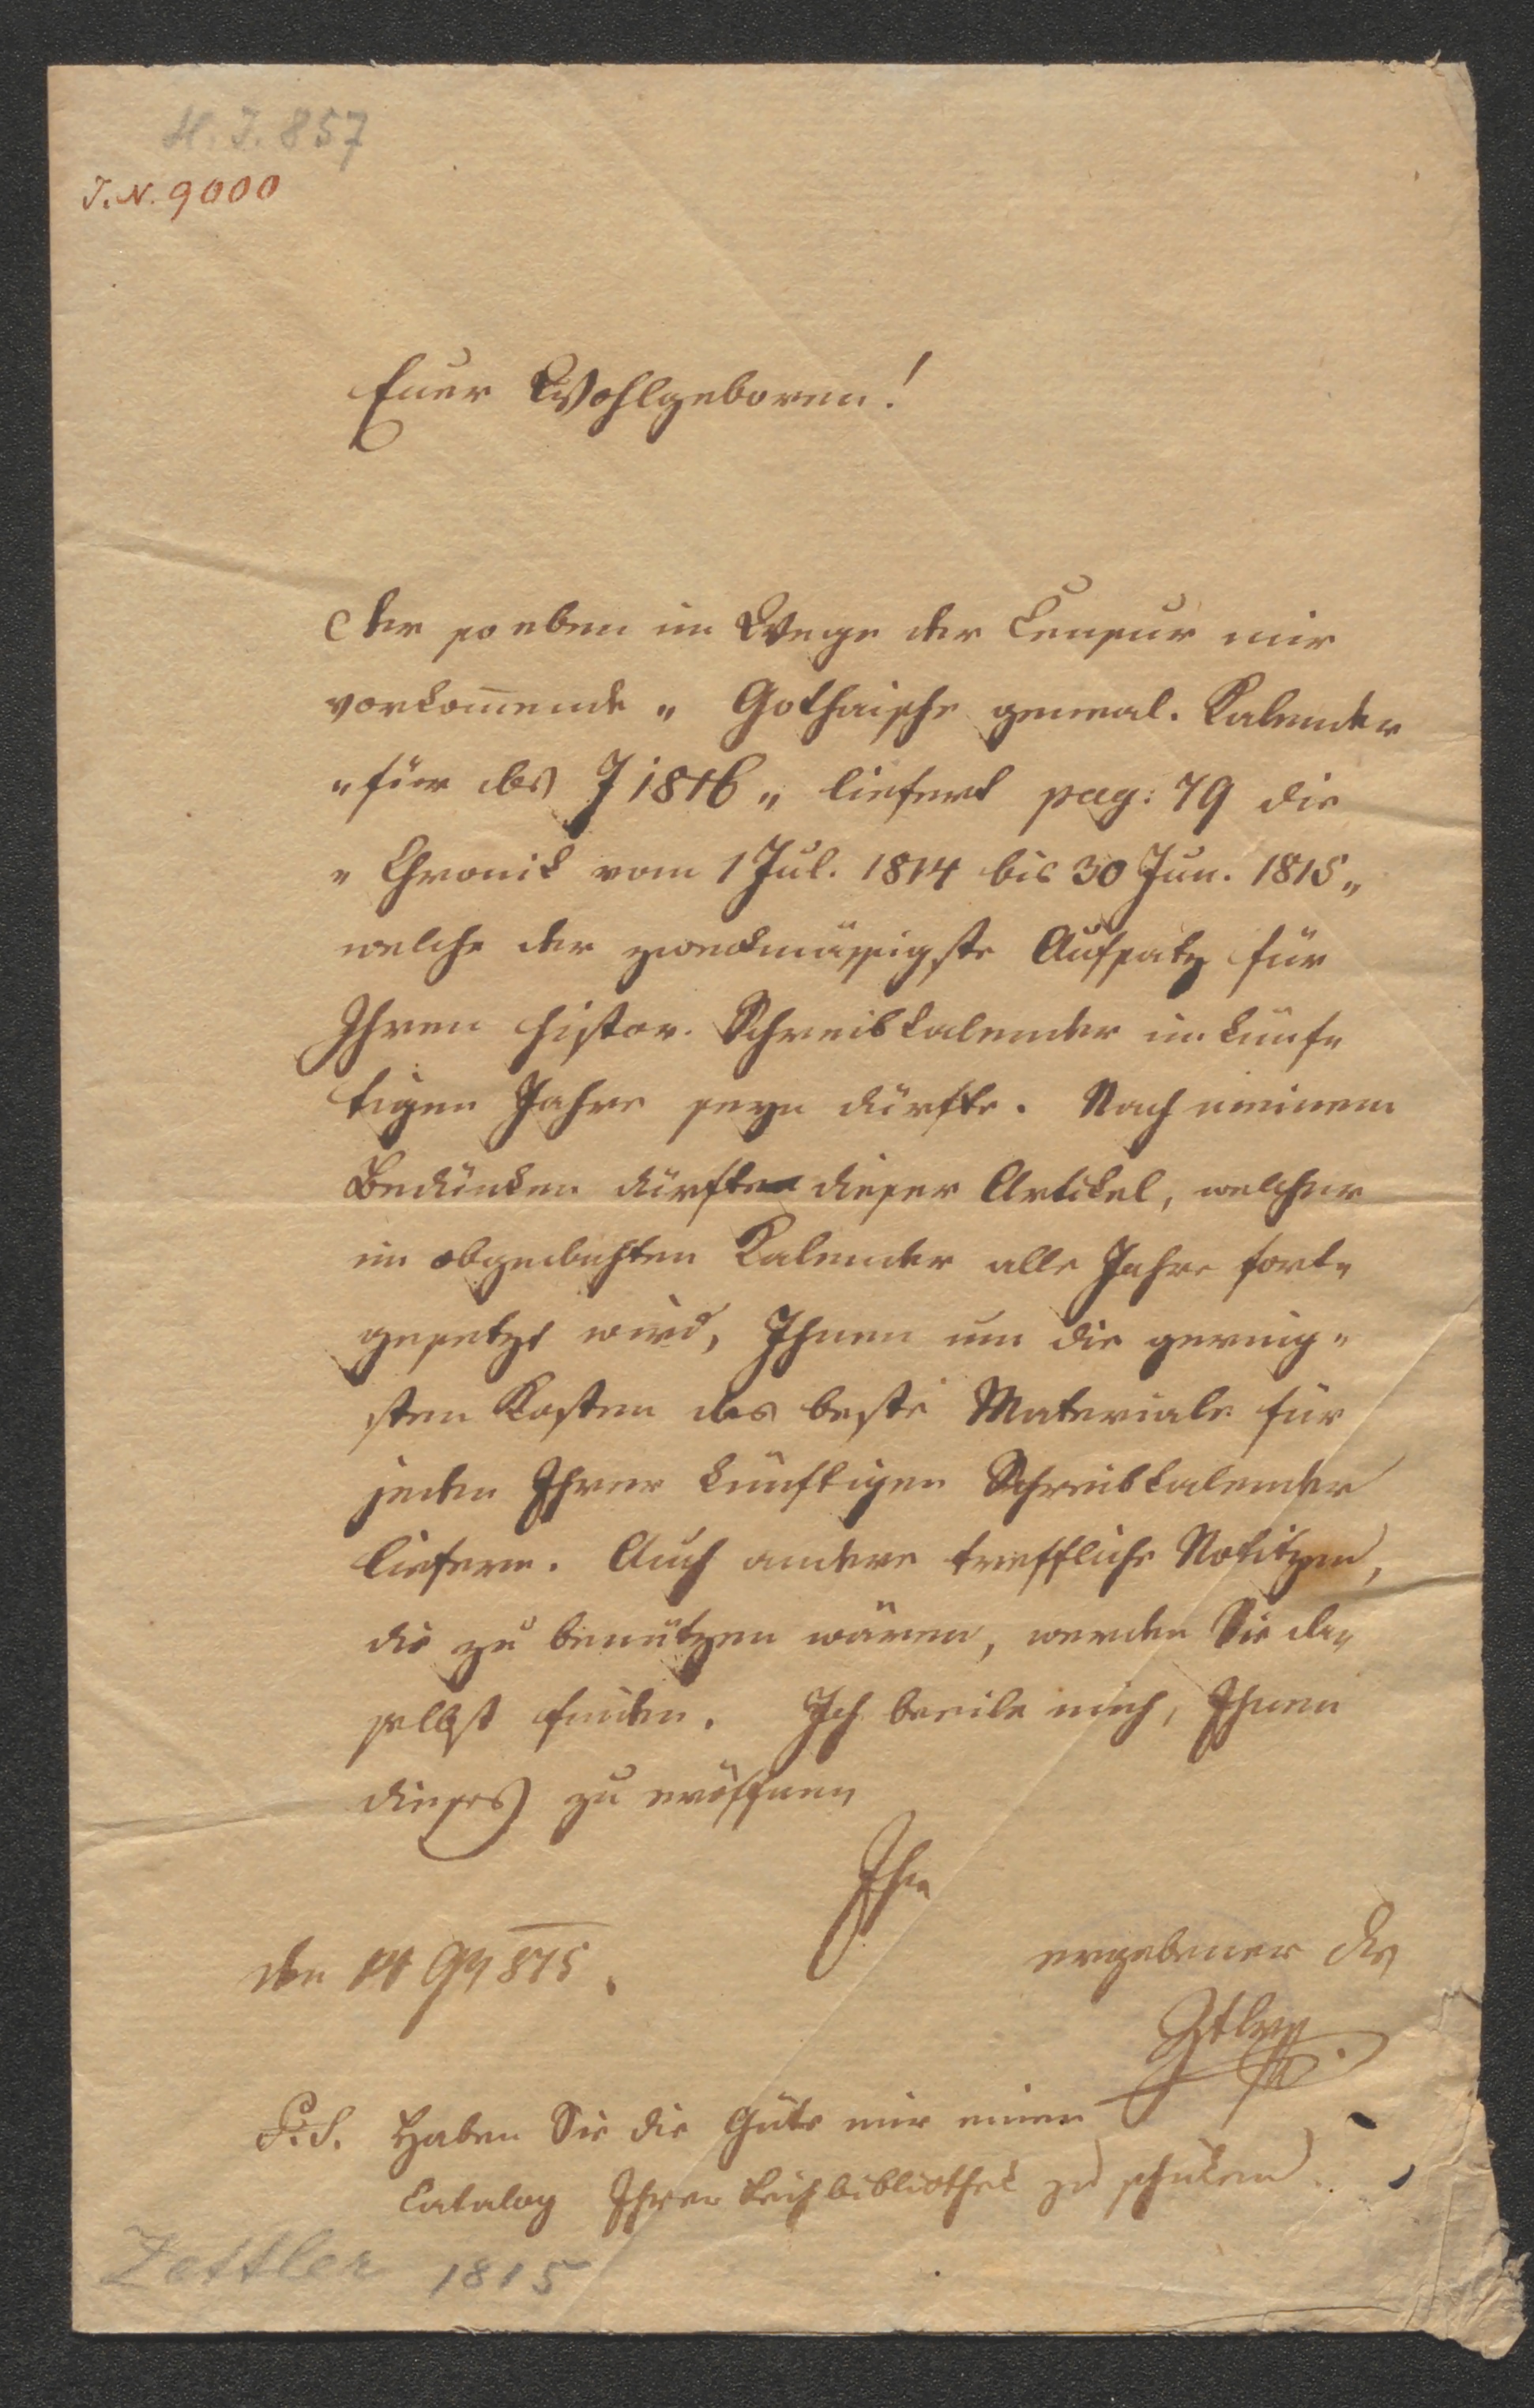 H. I. 857
I. N. 9000
Euer Wohlgeboren!
Der so eben im Wege der Censur mir
vorkom̅ende „ Gothaische geneal. Kalender
„für das J 1816„ liefert pag: 79 die
„ Chronik vom 1 Jul. 1814 bis 30 Jun. 1815„
welche der zweckmässigste Aufsatz für
Ihren histor. Schreibkalender im künf„
tigen Jahre seyn dürfte. Nach meinem
Bedünken dürfte dieser Artikel, welcher
im obgedachten Kalender alle Jahre fort„
gesetzt wird, Ihnen um die gering„
sten Kosten das beste Materiale für
jeden Ihrer künftigen Schreibkalender
liefern. Auch andere treffliche Notitzen,
die zu benützen wären, werden Sie da„
selbst finden. Ich beeile mich, Ihnen
dieses zu eröffnen
Ihr
den 14 9b 815.
ergebener Dr
Ztlr
P.S. Haben Sie die Güte mir einen
Catalog Ihrer Leihbibliothek zu schicken.
Zettler 1815